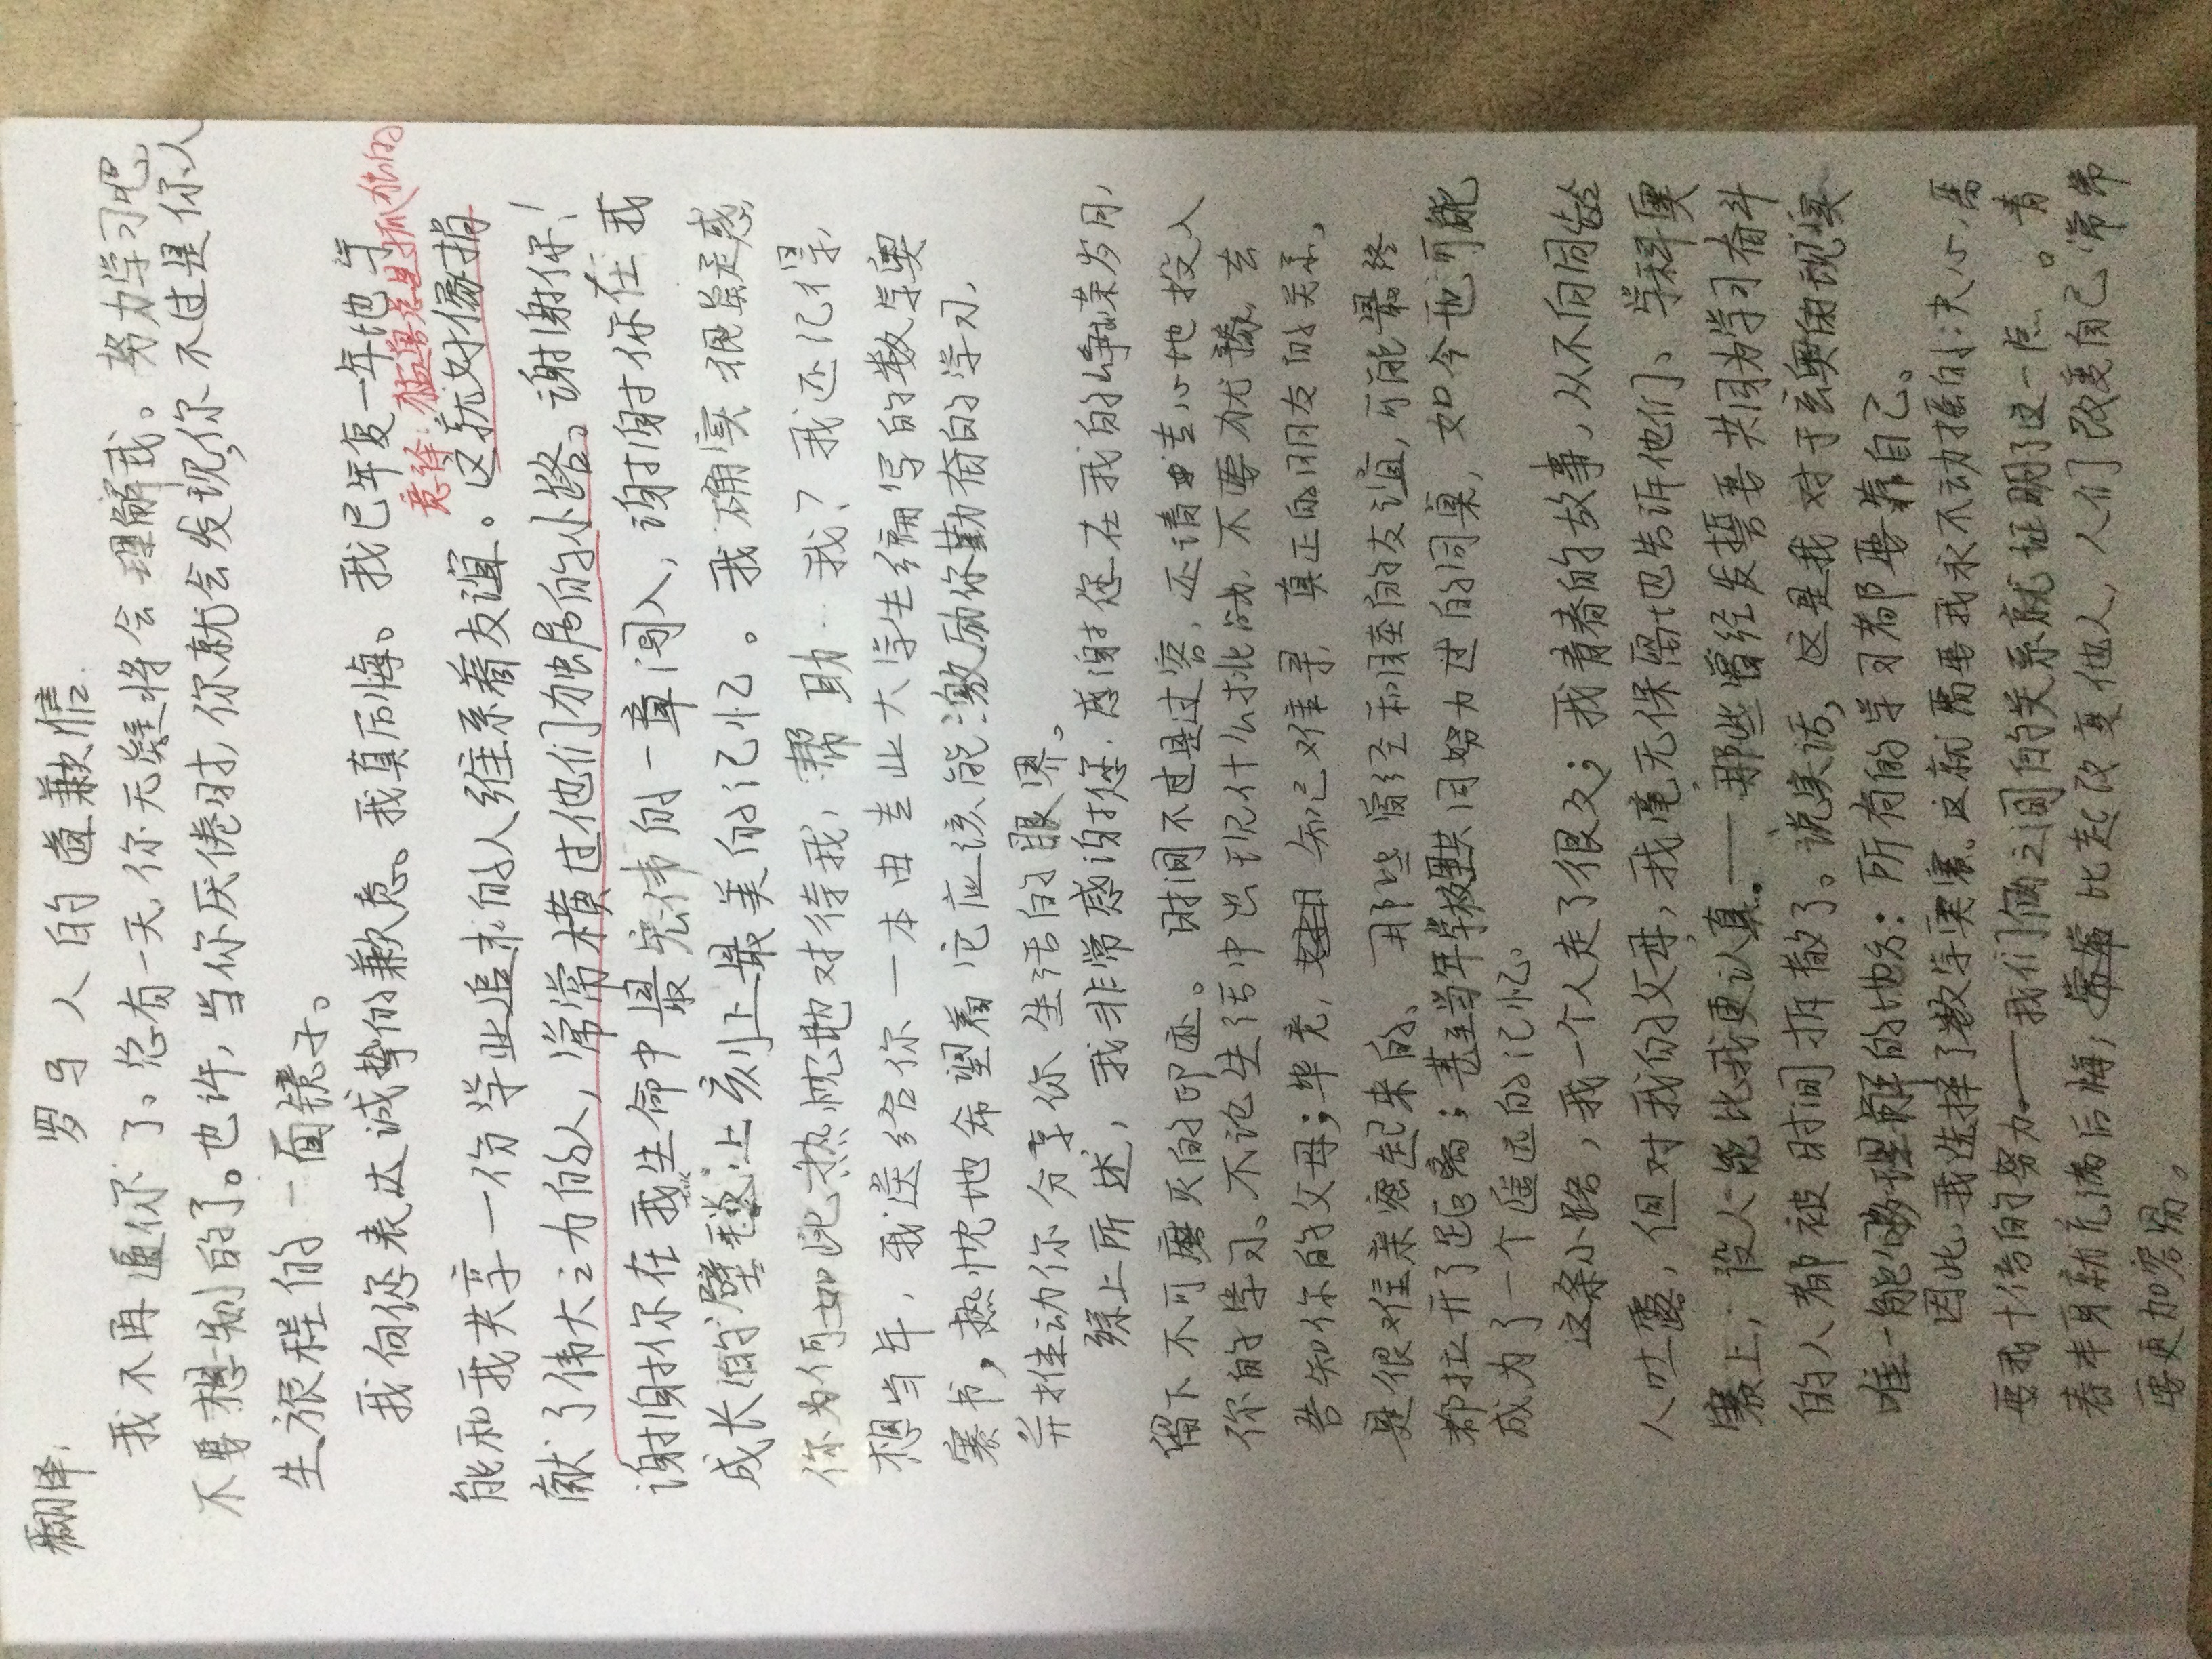 翻译：
罗马人的道歉信.
我不再逼你了。总有一天，你无疑将会理解我。努力学习吧，
不要想别的了。也许，当你厌倦时，你就会发现，你不过是你人
生旅程的一面镜子。
我向您表达诚挚的歉意。我真后悔。我已年复一年地与
意译：猛兽总是孤独的
能和我共享一份学业追求的人维系着友谊。这就好像捐
献了伟大之力的人，常常横过他们独居的小路。谢谢你！
谢谢你在我生命中最宏伟的一章闯入，谢谢你在我
成长的壁毯上刻上最美的记忆。我确实很疑惑，
你为何如此热忱地对待我，帮助我？我还记得，
想当年，我送给你一本由专业大学生编写的数学奥
赛书，热忱地希望着它应该能激励你勤奋的学习，
并推动你分享你生活的眼界。
综上所述，我非常感谢您.感谢您在我的峥嵘岁月，
留下不可磨灭的印迹。时间不过是过客，还请专心地投入
你的学习。不论生活中出现什么挑战，不要犹豫，去
告知你的父母；毕竟，知己难寻，真正的朋友的关系，
是很难亲密起来的、那些曾经和睦的友谊，可能最终
都拉开了距离；甚至当年学校里共同努力过的同桌，如今也可能
成为了一个遥远的记忆。
这条小路，我一个人走了很久；我青春的故事，从不向同龄
人吐露，但对我的父母，我毫无保留地告诉他们、学科奥
赛上，没人能比我更认真。——那些曾经发誓要共同为学习奋斗
的人都被时间拆散了。说实话，这是我对于玄奥的现实
唯一能够理解的地方：所有的学习都要靠自己。
因此，我选择了数学奥赛。这就需要我永不动摇的决心，需
要我十倍的努力。——我们俩之间的关系就证明了这一点。青
春本身就充满后悔；比起改变他人，人们改变自己常常
要更加容易。